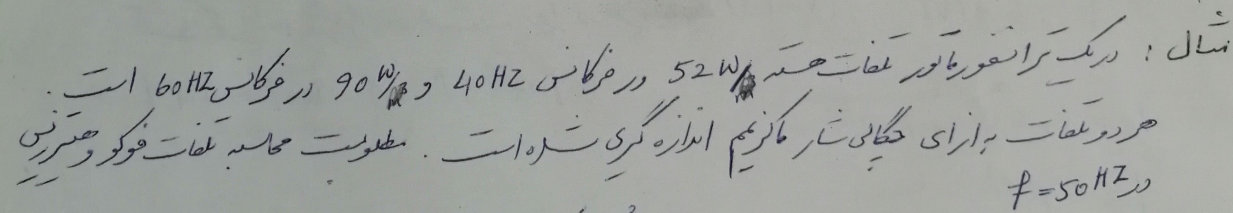 مثال : در یک ترانسفورماتور تلفات هسته 52W در فرکانس 40HZ و 90W در فرکانس 60HZ است .
هر دو تلفات به ازای چگالی شار ماکزیمم اندازه گیری شده است . مطلوبست محاسبه تلفات فوکو و هیترزیس
در f=50HZ